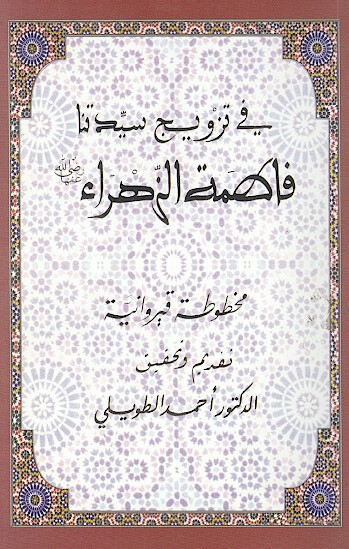 في تزويج سيّدتنا
فاطمة الزّهراء رضي الله عنها
مخطوطة قيروانية
تقديم وتحقيق
الدكتور أحمد الطويلي